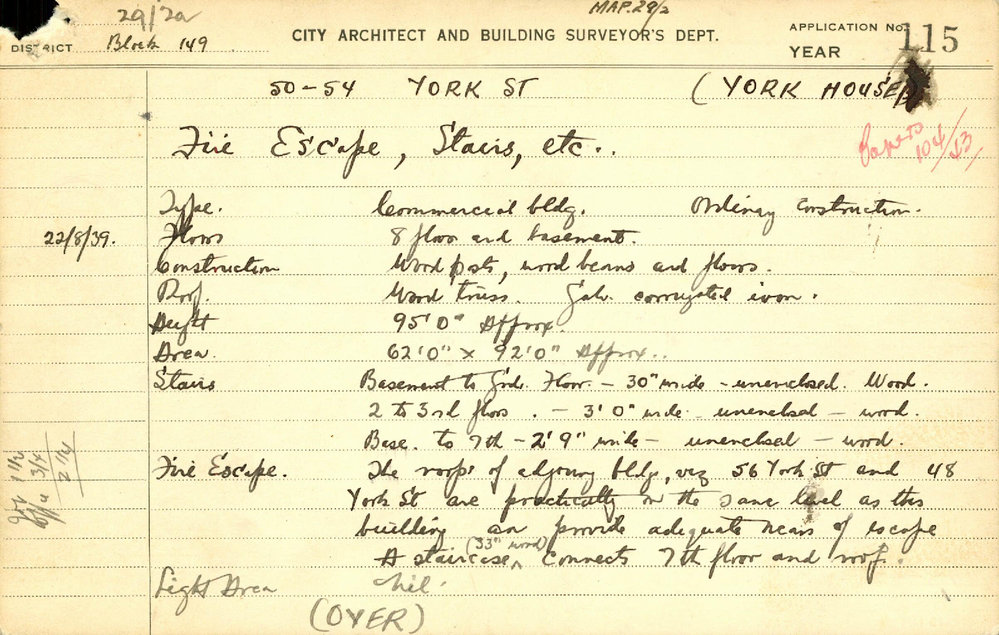 29/2a
MAP. 29/2
DISTRICT Block 149 CITY ARCHITECT AND BUILDING SURVEYOR'S DEPT. APPLICATION No. 115
YEAR
50-54 YORK ST (YORK HOUSE)
Fire Escape, Stairs, etc..
Papers 104/53
Type. Commercial bldg. Ordinary Construction.
22/8/39. Floors 8 floor and basement.
Construction Wood posts, wood beams and floors.
Roof. Wood truss. Galv. corrugated iron.
Height 95'0" Approx.
Area. 62'0" x 92'0" Approx..
Stairs Basement to Grd. Floor - 30" wide - unenclosed. Wood.
2 to 3rd floors. - 3'0" wide - unenclosed - wood.
Base. to 7th - 2'9" wide - unenclosed - wood.
1 1/2
3/4
2 1/4
Fire Escape. The roofs of adjoing bldg, viz 56 York St and 48
York St are practically on the same level as this
building an provide adequate means of escape
A staircase (33" wood) connects 7th floor and roof.
Light Area Nil.
(OVER)